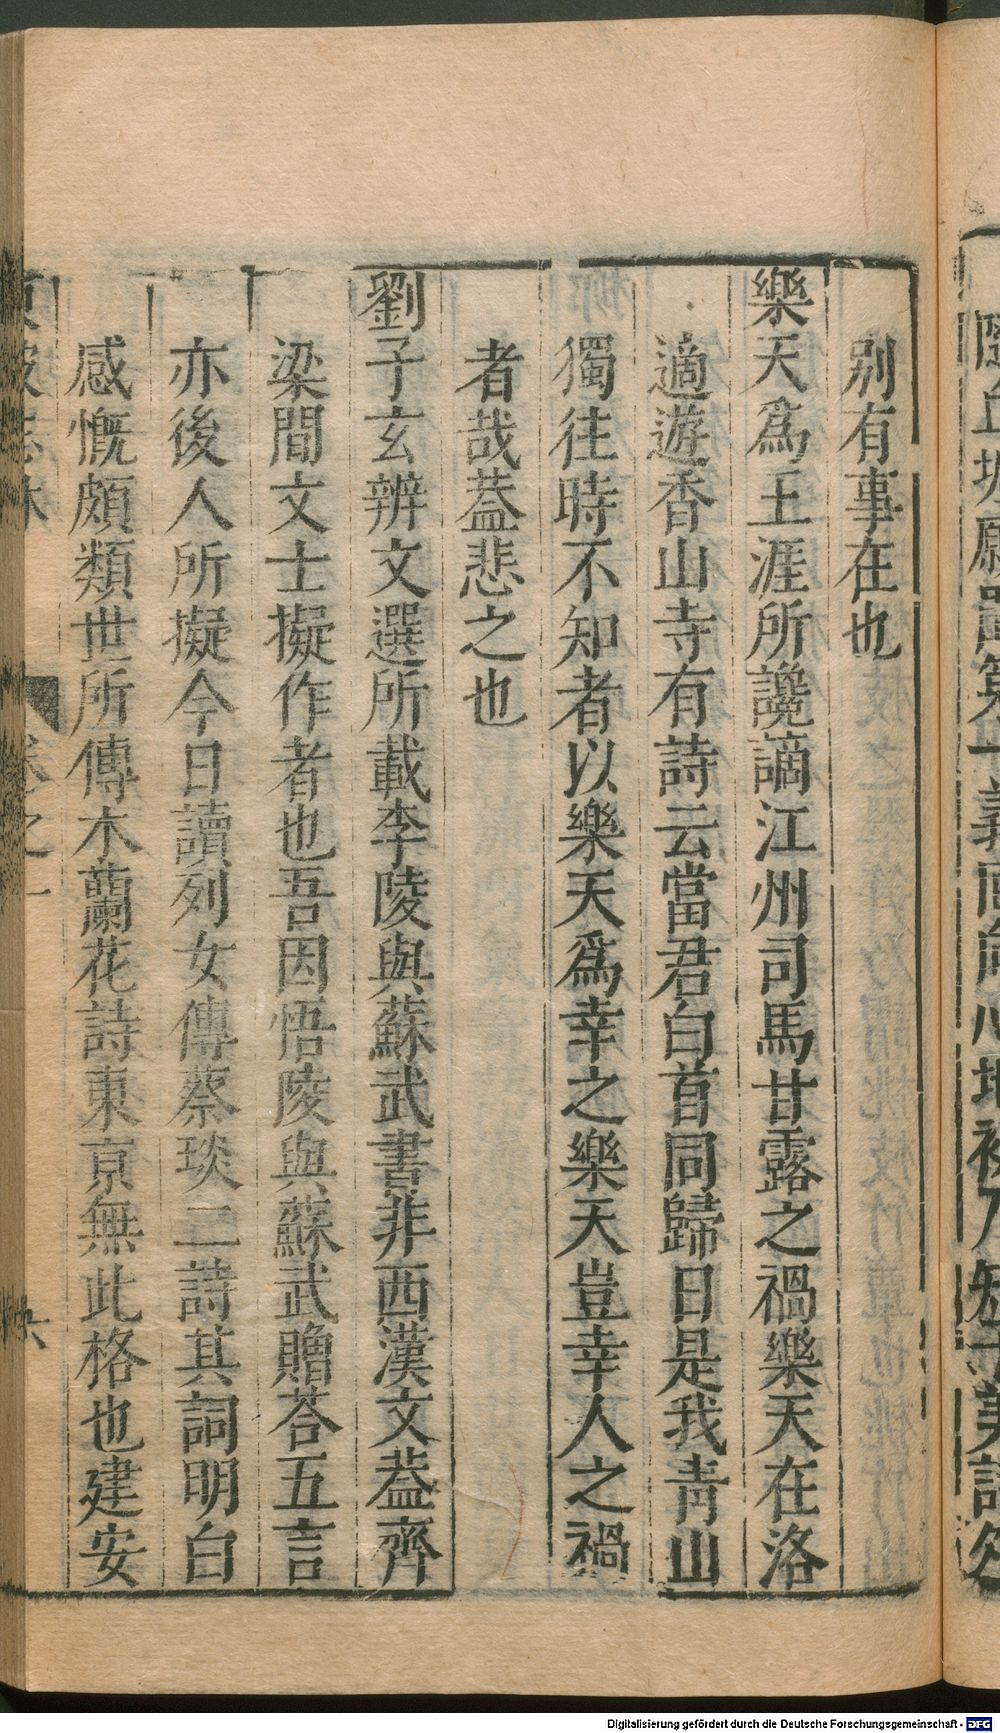 別有事在也
樂天爲王涯所讒謫江州司馬甘露之禍樂天在洛
適遊香山寺有詩云當君白首同歸日是我青山
獨往時不知者以樂天爲幸之樂天豈幸人之禍
者哉葢悲之也
劉子玄辨文選所載李陵與蘇武書非西漢文葢齊
梁間文士擬作者也吾因悟陵與蘇武贈荅五言
亦後人所擬今日讀列女傳蔡琰二詩其詞明白
感慨頗類世所傳木蘭花詩東京無此格也建安
卷之一
六
Digitalisierung gefördert durch die Deutsche Forschungsgemeinschaft - DFG